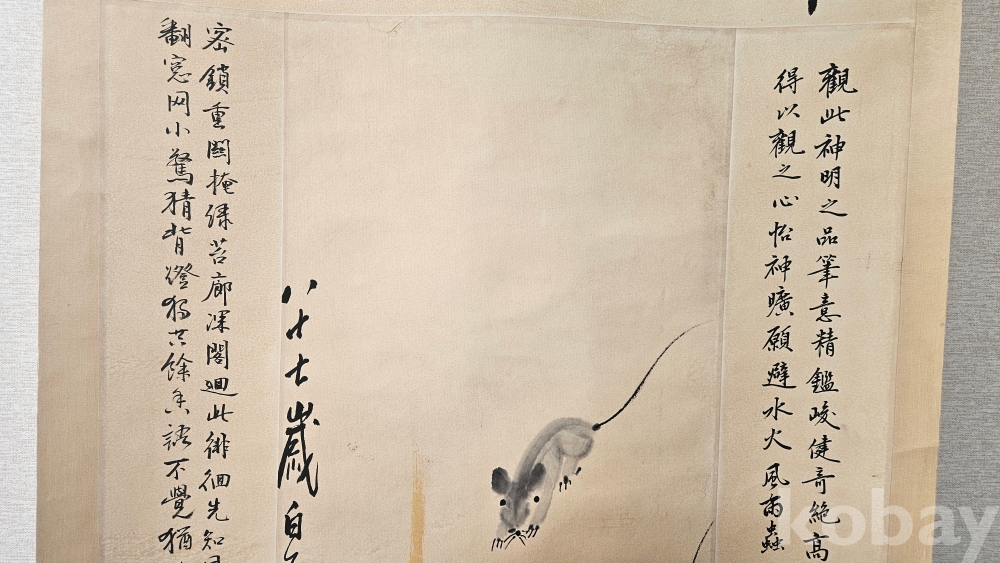 觀此神明之品筆意精鑑峻健奇絶高
得以觀之心怡神曠願避水火風雨蟲
八十七歲白
密鎖重關掩綠苔廊深閣迴此徘徊先知風
翻窓网小驚猜背燈獨共餘香語不覺猶
kobay